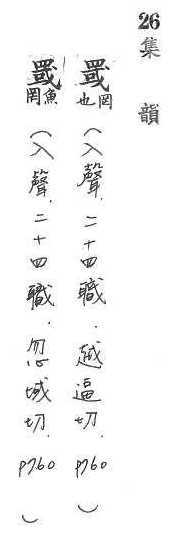 26
集韻
罭 罔也（入聲.二十四職.越逼切.P760）
罭 魚罔（入聲.二十四職.忽域切.P760）